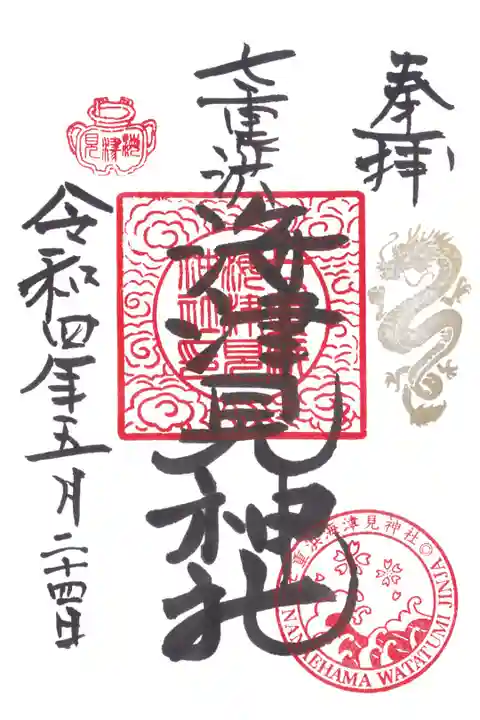 奉拝
七重浜
海津見神社
令和四年五月二十四日
海津見
七重浜海津見神社
NANAEHAMA WATATUMI JINJA